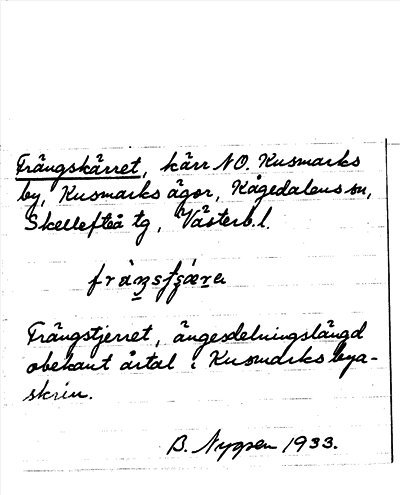 Trångskärret, kärr NO. Kusmarks
by, Kusmarks ägor, Kågedalens sn,
Skellefteå tg, Västerb. l.
Trångstjerret, ängesdelningslängd
obekant årtal i Kusmarks bya-
skrin.
B. Nygren 1933.